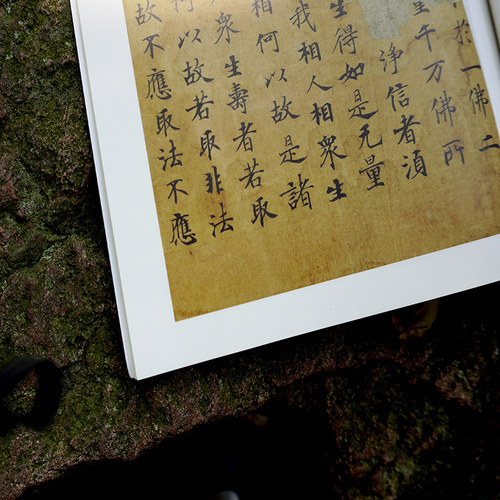 於一佛二
量千万佛所
淨信者湏
生得如是无量
我相人相衆生
相何以故是諸
衆生壽者若取
何以故若取非法
故不應取法不應